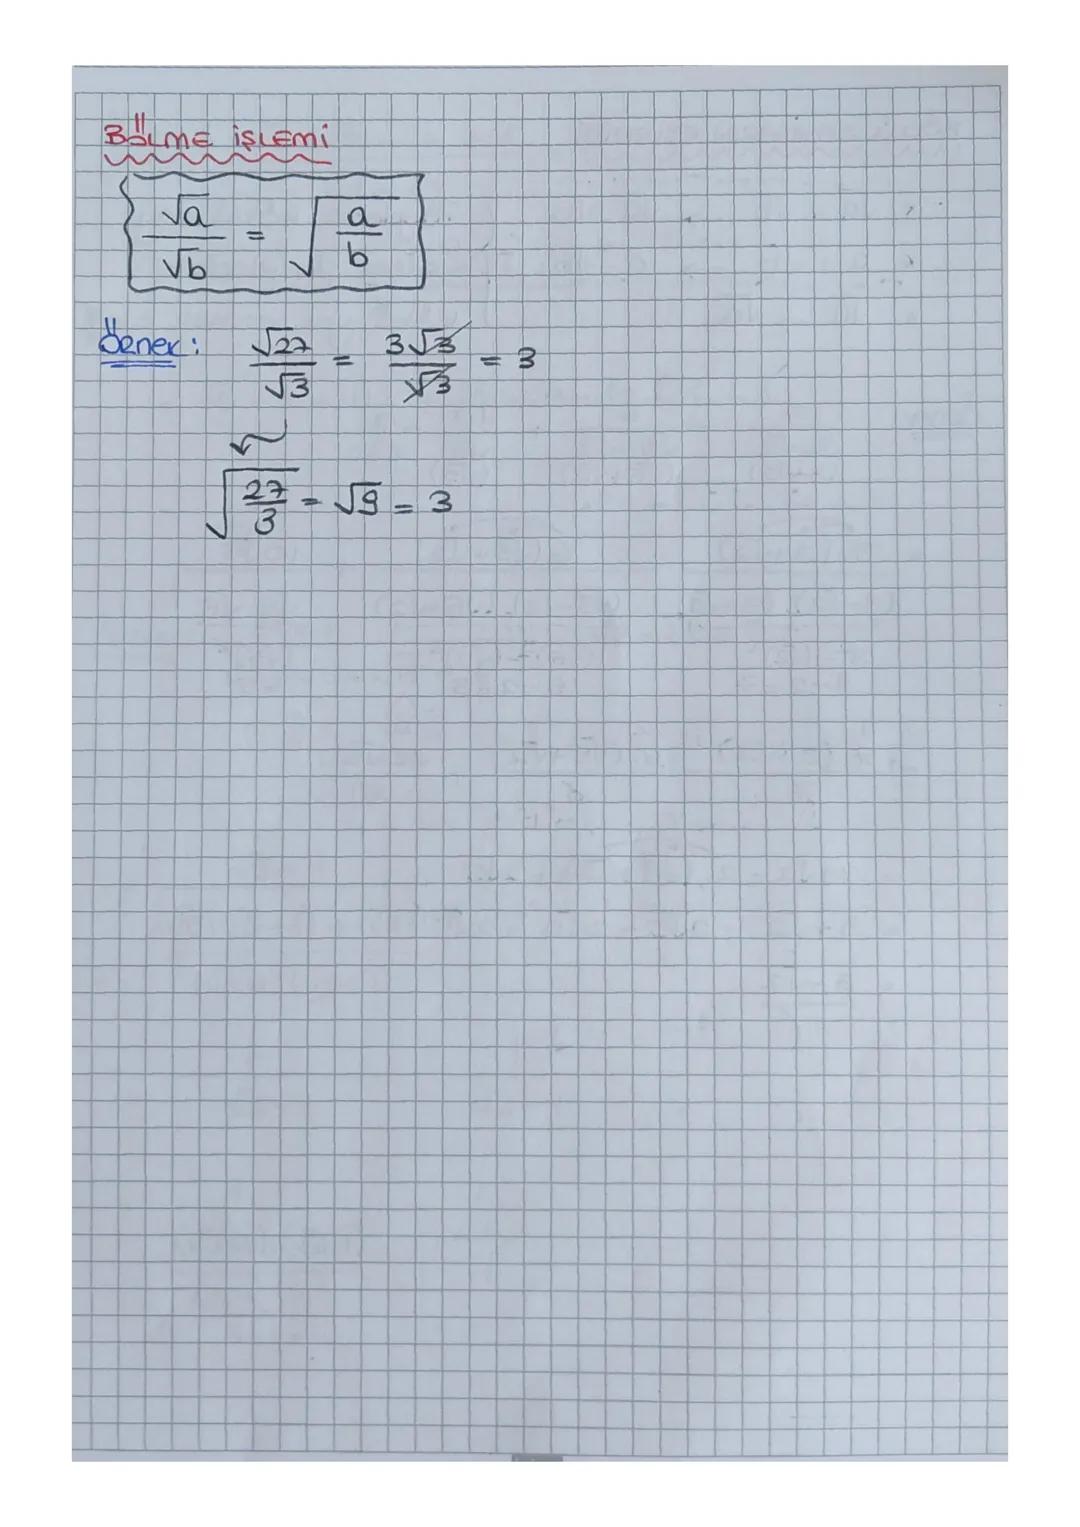 BÖLME İŞLEMİ
√a / √b = √(a/b)
Öenek: √27 / √3 = 3√3 / √3 = 3
√(27/3) = √9 = 3